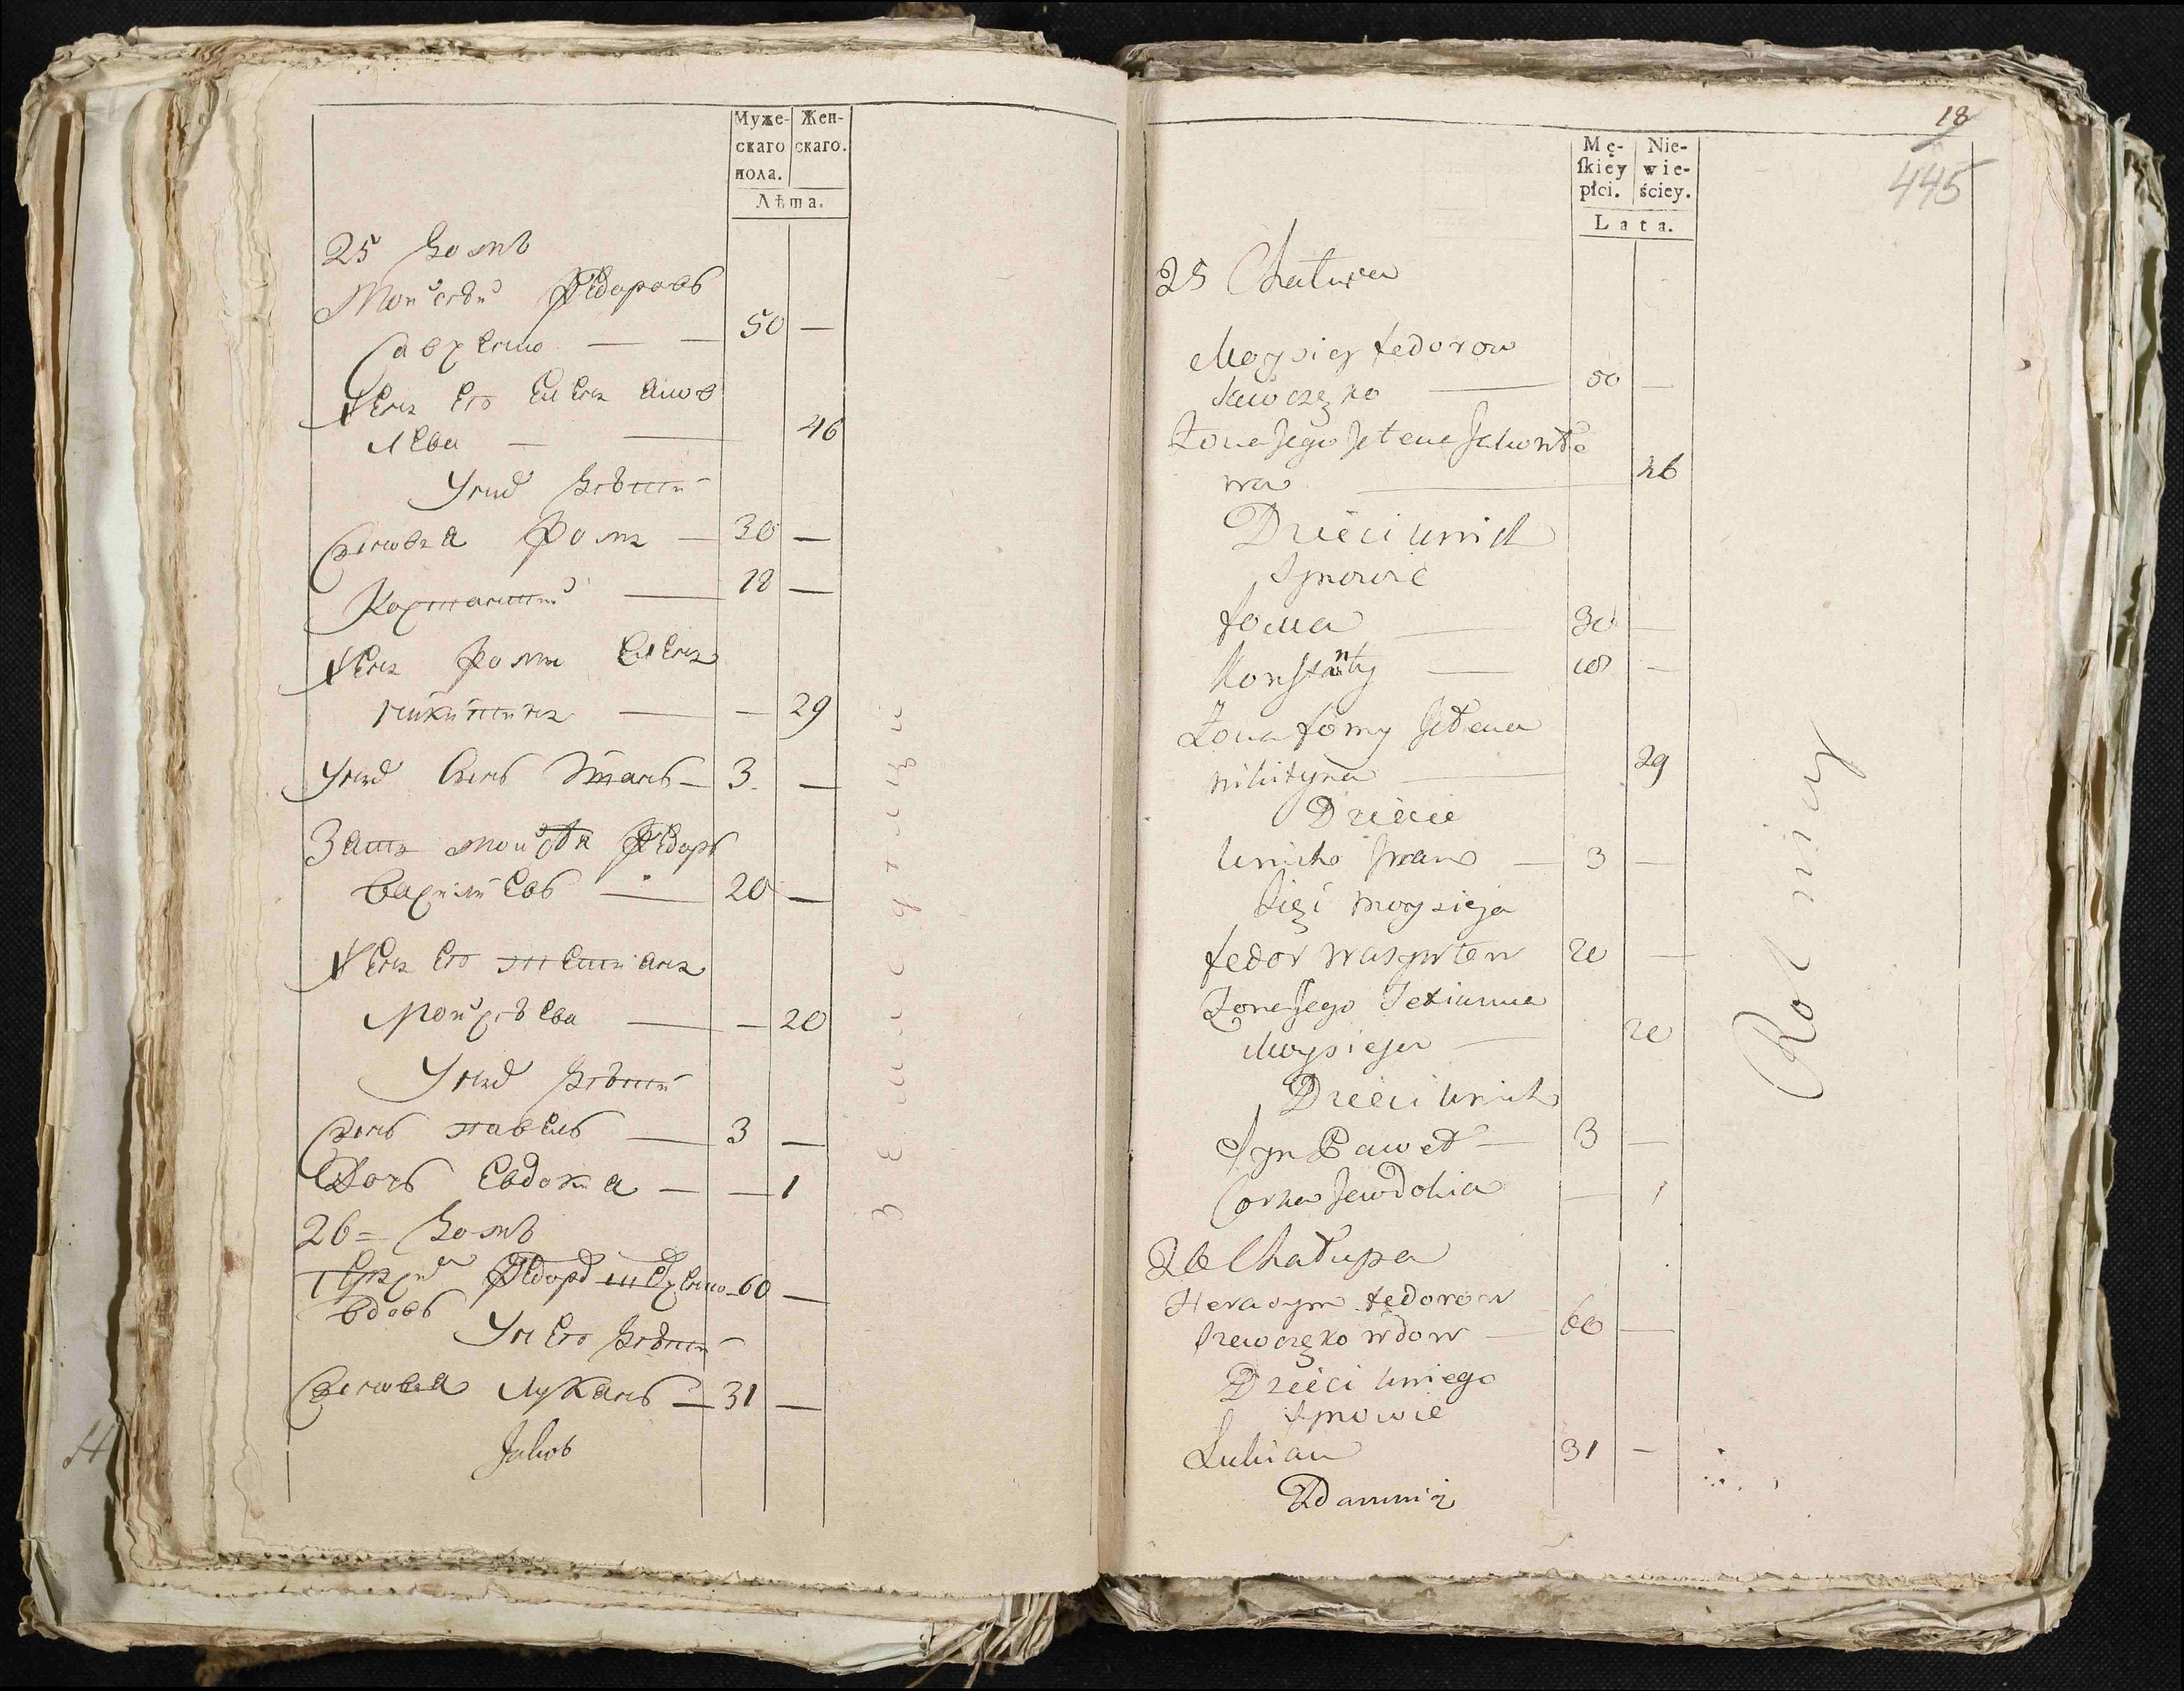 Муже-
скаго
пола.
Жен-
скаго.
Лѣта.
25 Домъ
Мойсѣй Федоровъ
50 —
Жена Его Елена
46
У нихъ Дѣти
Сыновья Фома — 30 —
— 18 —
Жена Фомы Елена
Никитина — — 29
У нихъ сынъ Иванъ — 3 —
Зять Мойсѣя Федоръ
Василиевъ — 20 —
Жена Его Татиана
Мойсѣева — — 20
У нихъ Дѣти
Сынъ Павелъ — 3 —
Дочь Евдокиа — — 1
26 = Домъ
Герасимъ Федоровъ Шевченко — 60 —
вдовъ
У него Дѣти
Сыновья Лукианъ — 31 —
Jakob
18
445
Mę-
ſkiey
płci.
Nie-
wie-
ściey.
Lata.
25 Chałupa
Moysiey fedorow
Sawczęko — 50 —
Zona Jego Jełena Jakowle
wa — 46
Dzieci unich
Synowie
foma — 30 —
Konstanty — 18 —
Zona fomy Jełena
nikityna — 29
Dziecie
unicho Jwan — 3 —
Zięć moysieja
fedor wasylew 20 —
Zona Jego Tetianna
Moysiejew — 20
Dzieci unich
Syn Paweł — 3 —
Corka Jewdokia — 1
26 Chałupa
Herasym fedorow
Szewczęko wdow — 60 —
Dzieci uniego
Synowie
Lukian 31 —
Rolnicy